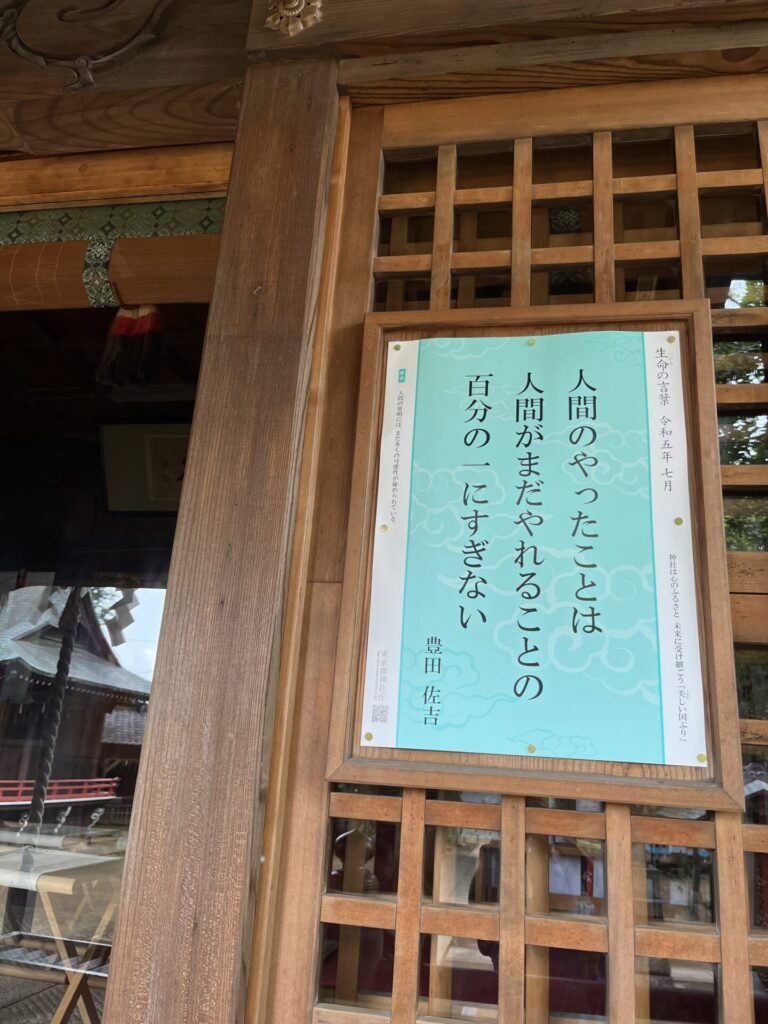 生命の言葉 令和五年 七月
神社は心のふるさと 未来に受け継ごう「美しい国ぶり」
人間のやったことは
人間がまだやれることの
百分の一にすぎない
豊田 佐吉
人間の発明には、まだ多くの可能性が秘められている。
東京都神社庁